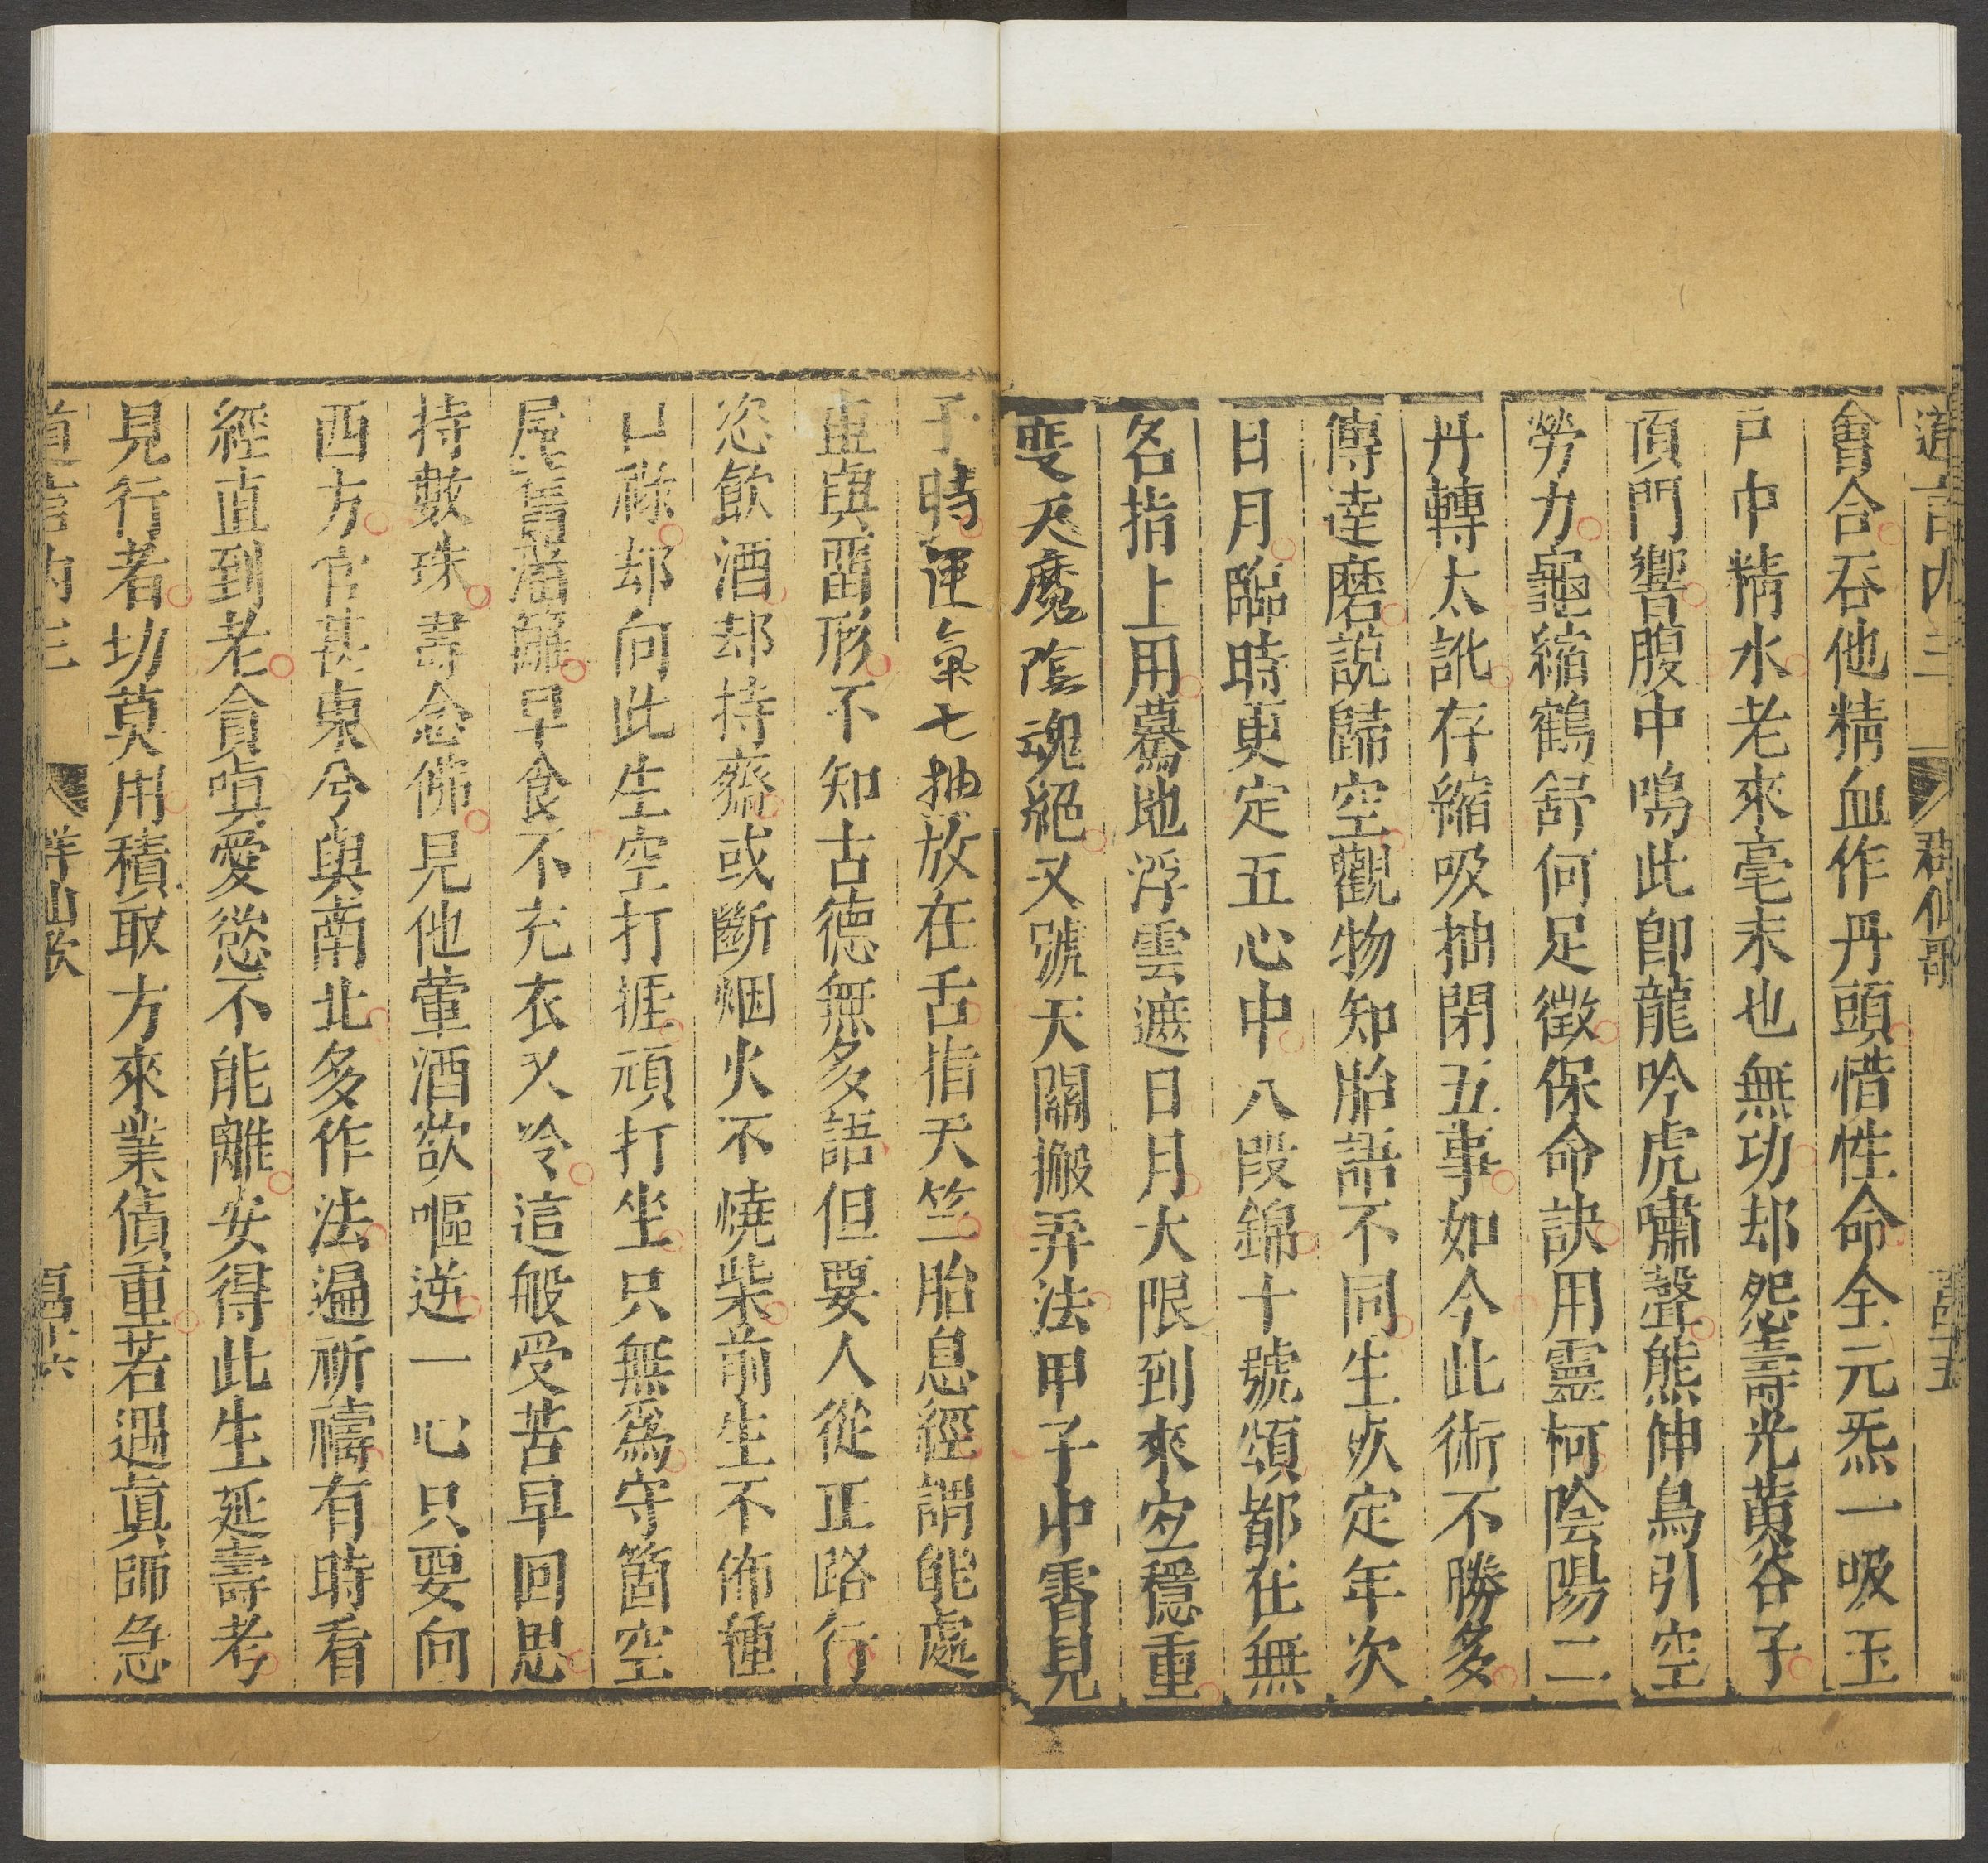 道言內三 群仙歌 百四十五
會合吞他精血作丹頭惜性命全元炁一吸玉
戶中精水老來毫末也無功却怨壽光黃谷子
頂門響腹中鳴此即龍吟虎嘯聲熊伸鳥引空
勞力龜縮鶴舒何足徵保命訣用靈柯陰陽二
丹轉太訛存縮吸抽閉五事如今此術不勝多
傳達磨說歸空觀物知胎語不同生死定年次
日月臨時更定五心中八段錦十號頌都在無
名指上用驀地浮雲遮日月大限到來空穩重
雙天魔陰魂絕又號天關搬弄法甲子中霄見
子時運氣七抽放在舌指天竺胎息經謂能處
世與留形不知古德無多語但要人從正路行
恣飲酒却持齋或斷烟火不燒柴前生不佈種
口祿却向此生空打捱頑打坐只無爲守箇空
屋舊籬早食不充衣又冷這般受苦早回思
持數珠壽念佛見他葷酒欲嘔逆一心只要向
西方官甚東兮與南北多作法遍祈禱有時看
經直到老貪嗔愛慾不能離安得此生延壽考
見行者切莫用積取方來業債重若遇眞師急
道言內三 群仙歌 百四十六